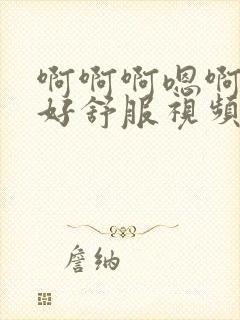 啊啊啊嗯啊
好舒服視頻
詹納